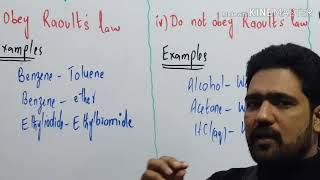 Obey Raoult's law
Examples
Benzene - Toluene
Benzene - ether
Ethyliodide - Ethylbromide
iv) Do not obey Raoult's law
Examples
Alcohol -
Acetone -
HCl(aq) -
KINEMASTER